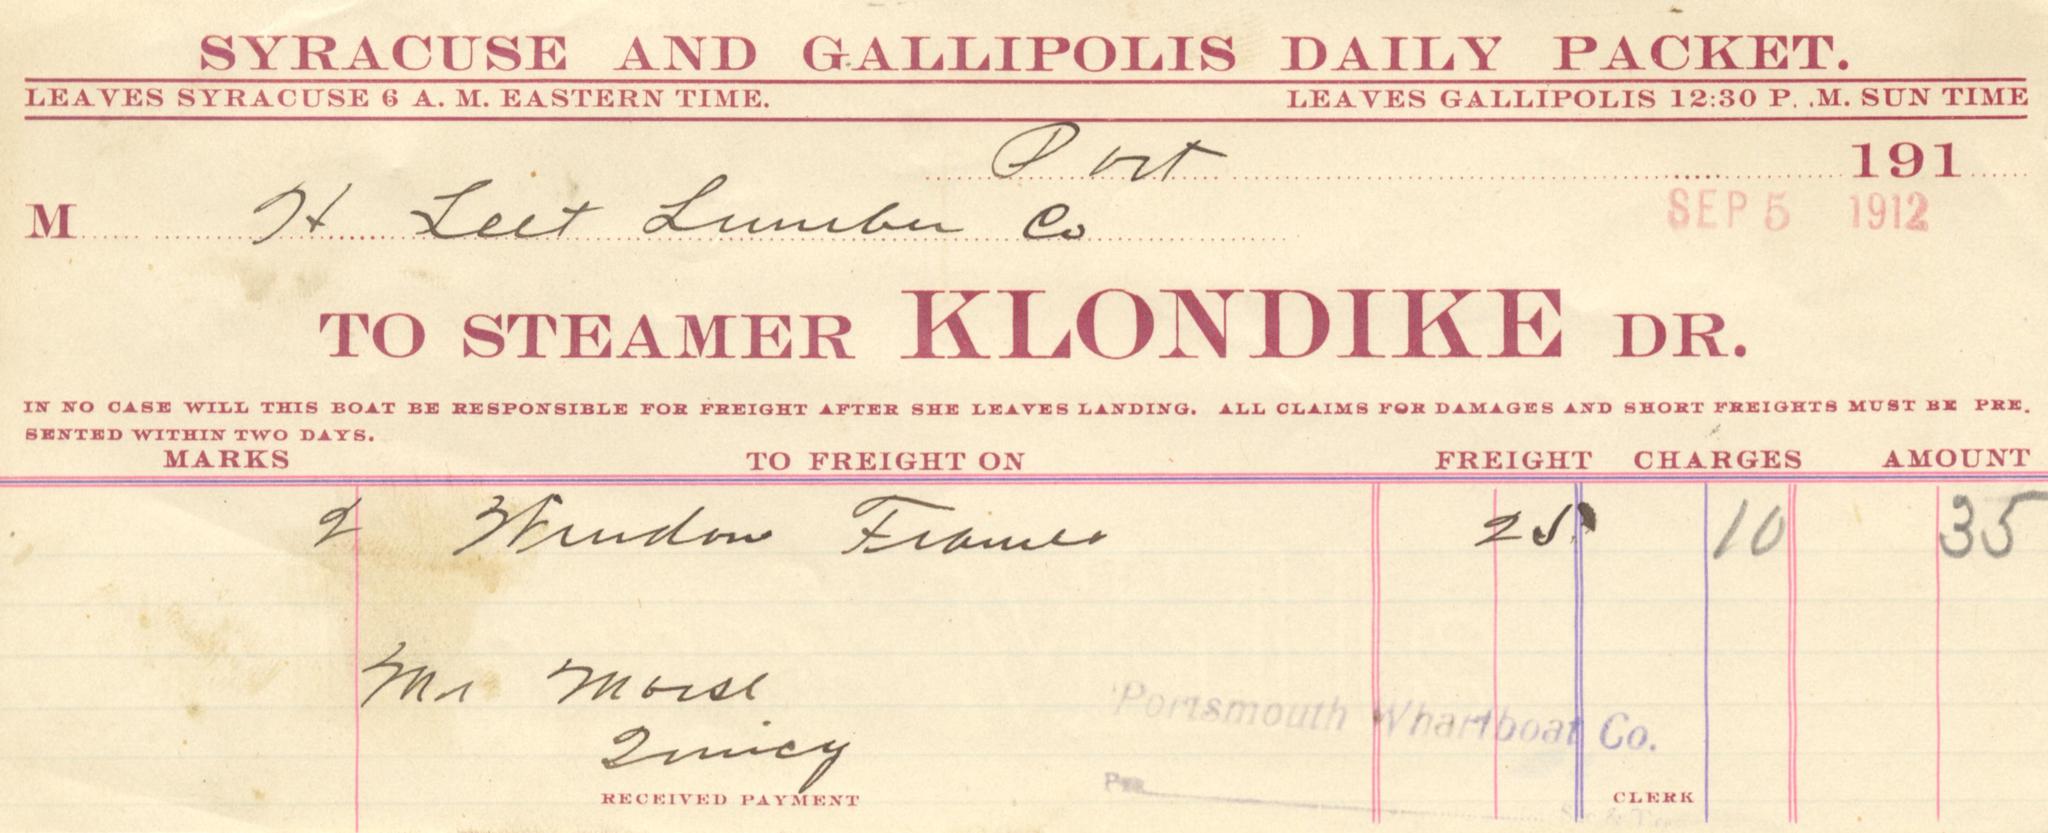 SYRACUSE AND GALLIPOLIS DAILY PACKET.
LEAVES SYRACUSE 6 A. M. EASTERN TIME. LEAVES GALLIPOLIS 12:30 P. .M. SUN TIME
Port 191
M H Leet Lumber Co SEP 5 1912
TO STEAMER KLONDIKE DR.
IN NO CASE WILL THIS BOAT BE RESPONSIBLE FOR FREIGHT AFTER SHE LEAVES LANDING. ALL CLAIMS FOR DAMAGES AND SHORT FREIGHTS MUST BE PRE.
SENTED WITHIN TWO DAYS.
MARKS TO FREIGHT ON FREIGHT CHARGES AMOUNT
2 Window Frames 25 10 35
Mr Morse
Portsmouth Wharfboat Co.
Quincy
Per
RECEIVED PAYMENT CLERK